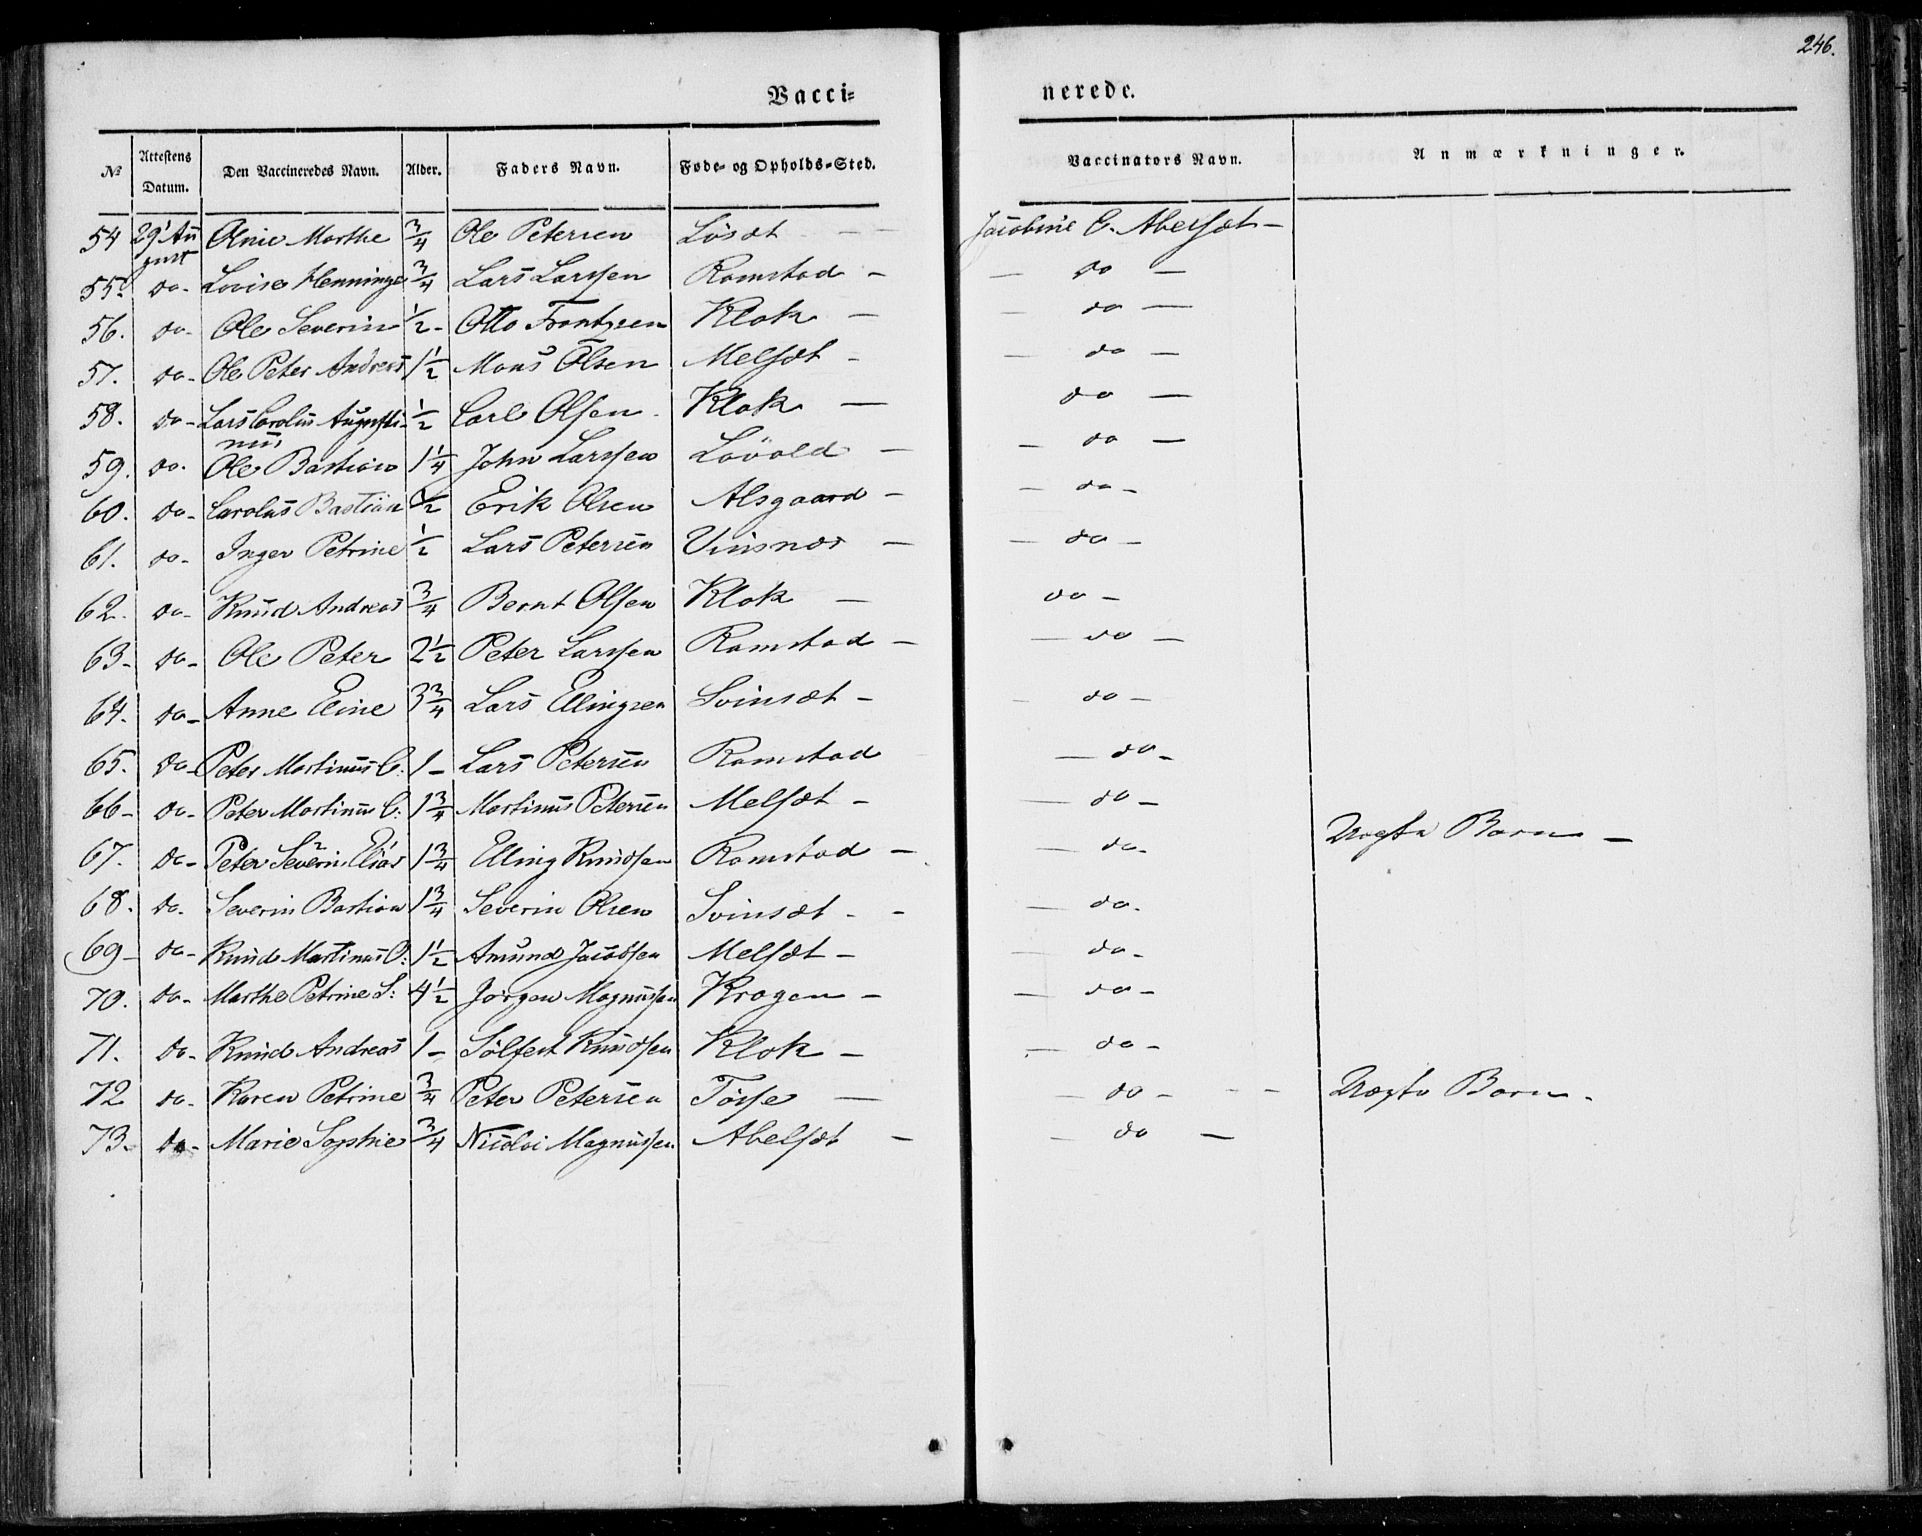 246.
Vacci= nerede.
No Attestens Datum. Den Vaccineredes Navn. Alder. Faders Navn. Føde- og Opholds-Sted. Vaccinators Navn. Anmærkninger.
54 29' Au Olnie Marthe 3/4 Ole Petersen Løsæt - - Jacobine C. Abelsæt -
gust
55. do- Lovise Henninge 3/4 Lars Larssen Ramstad - - do -
56. do- Ole Severin 1/2- Otto Frantzsen Klok - - do -
57. do- Ole Peter Andreas 1 1/2 Mons Olsen Melsæt - - do -
58. do- Lars Carolus Augusti- 1/2 Carl Olsen - Klok - do -
nus
59. do. Ole Bastian 1 1/4 John Larssen Løvold - - do -
60. do- Carolus Bastian 1/2 Erik Olsen Alsgaard - - do -
61. do- Inger Petrine 1/2 Lars Petersen Vinsnæs - - do -
62. do- Knud Andreas 3/4 Bernt Olsen Klok - do -
63- do- Ole Peter 2 1/2 Peter Larssen Ramstad - - do -
64. do- Anne Eline 3 3/4 Lars Ellingsen Svinsæt - - do -
65. do- Peter Martinus C: 1- Lars Petersen Ramstad - do -
66- do- Peter Martinus C: 1 3/4 Martinus Petersen Melsæt - - do -
67. do- Peter Severin Elias 1 3/4 Elling Knudsen Ramstad - - do- Uægte Barn -
68. do. Severin Bastian 1 3/4 Severin Olsen Svinsæt - - - do-
69- do- Knud Martinus O: 1 1/2 Amund Jacobsen Melsæt - - do-
70. do- Marthe Petrine S: 4 1/2 Jørgen Magnussen Kragen - - do -
71. do- Knud Andreas 1- Sølfest Knudsen Klok - - do -
72 do- Karen Petrine 3/4 Peter Petersen Tøsse - - do - - - Uægte Barn -
73- do- Marie Sophie 3/4 Nicolai Magnussen Abelsæt - - do -